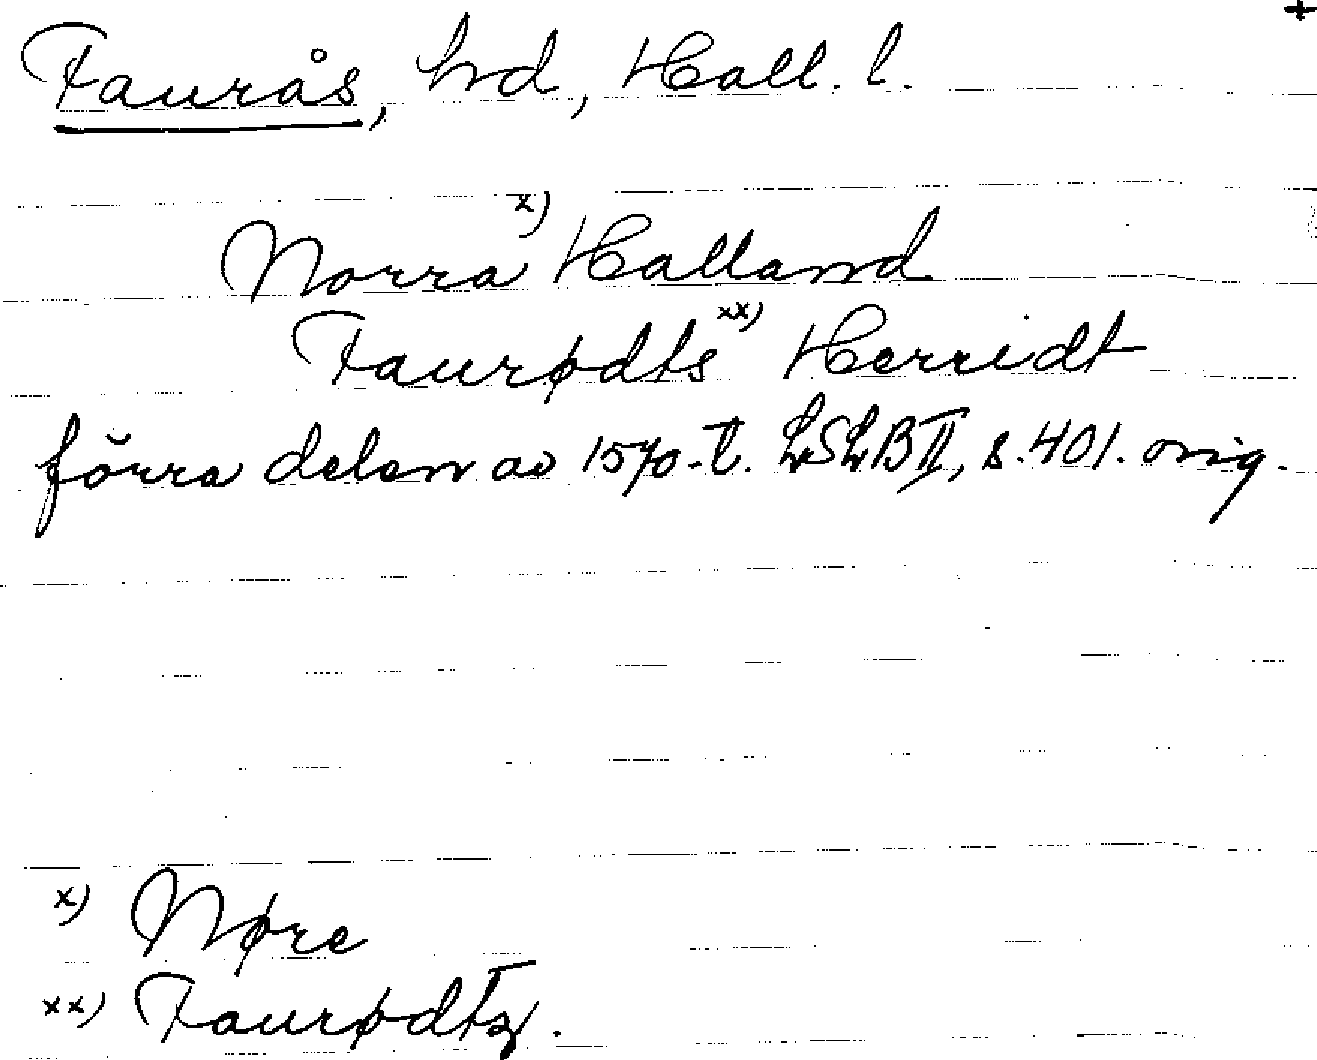 +
Faurås, hd, Hall. l.
Norra x) Halland
Faurødts xx) Herridt
förra delen av 1570-t. LSLB II, s. 401. orig.
x) Nøre
xx) Faurødtz.